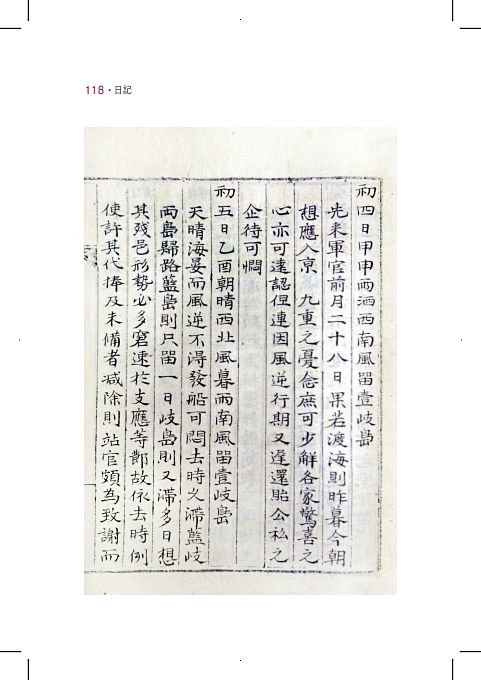 118 · 日記
初四日甲申雨洒西南風留壹岐島
先來軍官前月二十八日果若渡海則昨暮今朝
想應入京 九重之憂念庶可少解各家驚喜之
心亦可遠認但連因風逆行期又違還貽公私之
企待可憫
初五日乙酉朝晴西北風暮西南風留壹岐島
天晴海晏而風逆不得發船可悶去時久滯藍岐
兩島歸路藍島則只留一日岐島則又滯多日想
其殘邑形勢必多窘速於支應等節故依去時例
使許其代捧及未備者减除則站官頗為致謝而